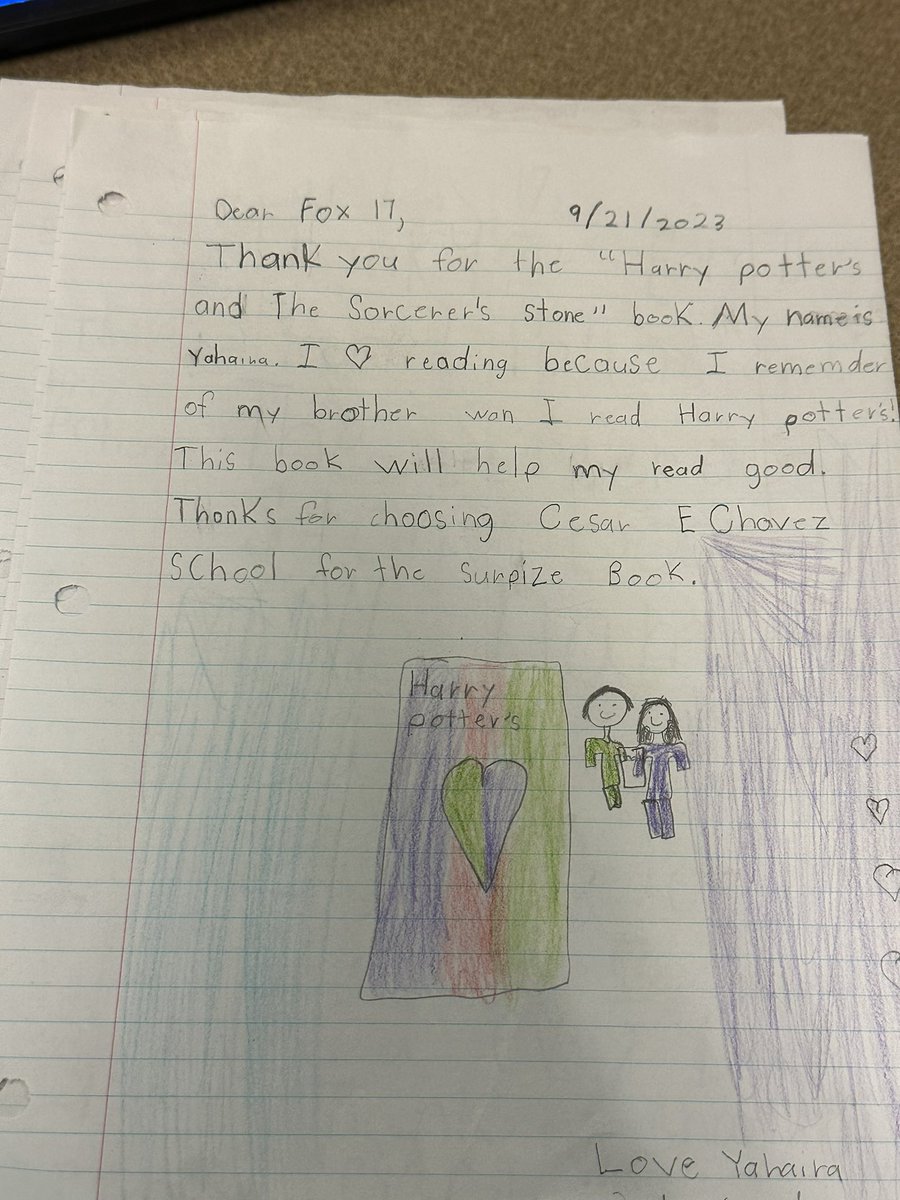 Dear Fox 17, 9/21/2023
Thank you for the "Harry potter's
and The Sorcerer's stone" book. My name is
Yahaira. I ♡ reading because I rememder
of my brother wan I read Harry potter's!
This book will help my read good.
Thonks for choosing Cesar E Chavez
SChool for the Surpize Book.
Harry
potter's
Love Yahaira